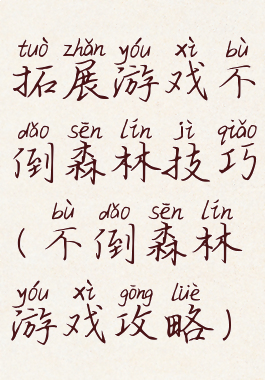 tuò zhǎn yóu xì bù
拓展游戏不
dǎo sēn lín jì qiǎo
倒森林技巧
bù dǎo sēn lín
(不倒森林
yóu xì gōng lüè
游戏攻略)